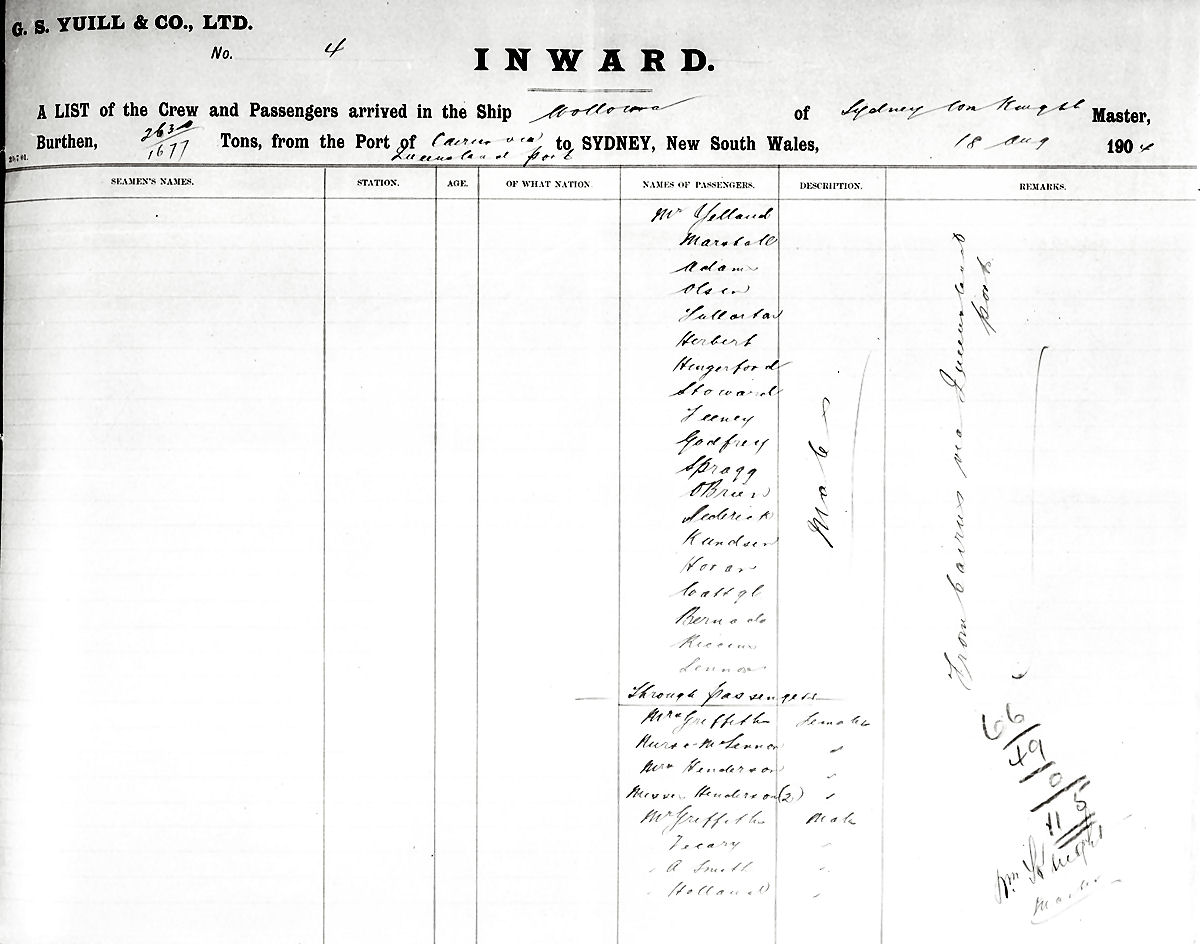 G. S. YUILL & CO., LTD.
No. 4
INWARD.
A LIST of the Crew and Passengers arrived in the Ship Wollowra of Sydney Wm Knight Master,
Burthen, 2630/1677 Tons, from the Port of Cairns via Queensland port to SYDNEY, New South Wales, 18 Aug 1904
SEAMEN'S NAMES. STATION. AGE. OF WHAT NATION. NAMES OF PASSENGERS. DESCRIPTION. REMARKS.
Mr Yelland
Marshall
Adams
Olsen
Fullarton
Herbert
Hungerford
Stoward
Feeney
Godfrey
Spragg
OBrien
Kundsen
Horan
Bernado
Lennox
Males
From Cairns via Queensland
port
Through passengers
Mrs Griffiths Female
Nurse McLennon "
Mrs Henderson "
Misses Henderson (2) "
Mr Griffiths Male
" A Smith "
" Holland "
66
49
0
115
Wm Knight
Master